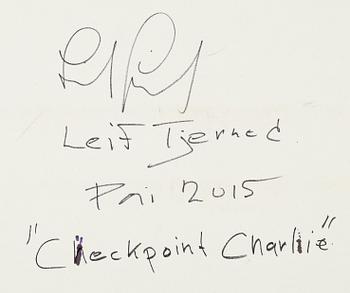 Leif Tjerned
Pri 2015
"Checkpoint Charlie"